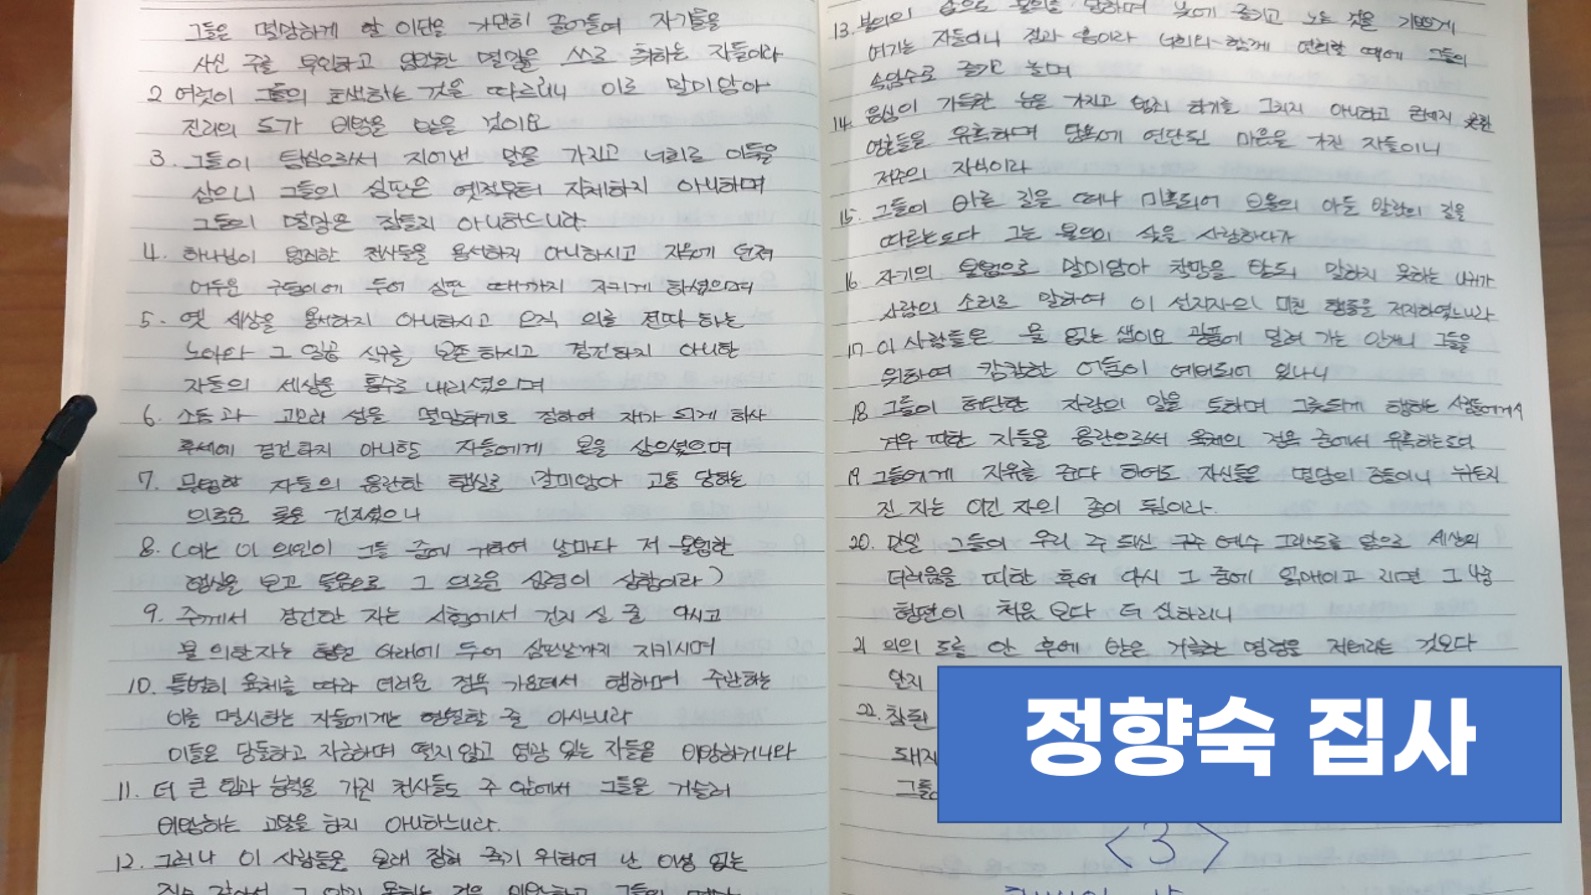 그들은 멸망하게 할 이단을 가만히 끌어들여 자기들을
사신 주를 부인하고 임박한 멸망을 스스로 취하는 자들이라
2 여럿이 그들의 호색하는 것을 따르리니 이로 말미암아
진리의 도가 비방을 받을 것이요
3. 그들이 탐심으로써 지어낸 말을 가지고 너희로 이득을
삼으니 그들의 심판은 옛적부터 지체하지 아니하며
그들의 멸망은 잠들지 아니하느니라
4. 하나님이 범죄한 천사들을 용서하지 아니하시고 지옥에 던져
어두운 구덩이에 두어 심판 때까지 지키게 하셨으며
5. 옛 세상을 용서하지 아니하시고 오직 의를 전파하는
노아와 그 일곱 식구를 보존하시고 경건하지 아니한
자들의 세상을 홍수로 내리셨으며
6. 소돔과 고모라 성을 멸망하기로 정하여 재가 되게 하사
후세에 경건하지 아니할 자들에게 본을 삼으셨으며
7. 무법한 자들의 음란한 행실로 말미암아 고통 당하는
의로운 롯을 건지셨으니
8. (이는 이 의인이 그들 중에 거하여 날마다 저 불법한
행실을 보고 들음으로 그 의로운 심령이 상함이라)
9. 주께서 경건한 자는 시험에서 건지실 줄 아시고
불의한 자는 형벌 아래에 두어 심판날까지 지키시며
10. 특별히 육체를 따라 더러운 정욕 가운데서 행하며 주관하는
이를 멸시하는 자들에게는 형벌할 줄 아시느니라
이들은 당돌하고 자긍하며 떨지 않고 영광 있는 자들을 비방하거니와
11. 더 큰 힘과 능력을 가진 천사들도 주 앞에서 그들을 거슬러
비방하는 고발을 하지 아니하느니라.
12. 그러나 이 사람들은 본래 잡혀 죽기 위하여 난 이성 없는
13. 불의의 값으로 불의를 당하며 낮에 즐기고 노는 것을 기쁘게
여기는 자들이니 점과 흠이라 너희와 함께 연회할 때에 그들의
속임수로 즐기고 놀며
14. 음심이 가득한 눈을 가지고 범죄하기를 그치지 아니하고 굳세지 못한
영혼들을 유혹하며 탐욕에 연단된 마음을 가진 자들이니
저주의 자식이라
15. 그들이 바른 길을 떠나 미혹되어 브올의 아들 발람의 길을
따르는도다 그는 불의의 삯을 사랑하다가
16 자기의 불법으로 말미암아 책망을 받되 말하지 못하는 나귀가
사람의 소리로 말하여 이 선지자의 미친 행동을 저지하였느니라
17 이 사람들은 물 없는 샘이요 광풍에 밀려 가는 안개니 그들을
위하여 캄캄한 어둠이 예비되어 있나니
18 그들이 허탄한 자랑의 말을 토하며 그릇되게 행하는 사람들에게서
겨우 피한 자들을 음란으로써 육체의 정욕 중에서 유혹하는도다
19 그들에게 자유를 준다 하여도 자신들은 멸망의 종들이니 누구든지
진 자는 이긴 자의 종이 됨이라.
20. 만일 그들이 우리 주 되신 구주 예수 그리스도를 앎으로 세상의
더러움을 피한 후에 다시 그 중에 얽매이고 지면 그 나중
형편이 처음보다 더 심하리니
21 의의 도를 안 후에 받은 거룩한 명령을 저버리는 것보다
알지
22. 참된
돼지
그들
정향숙 집사
<3>